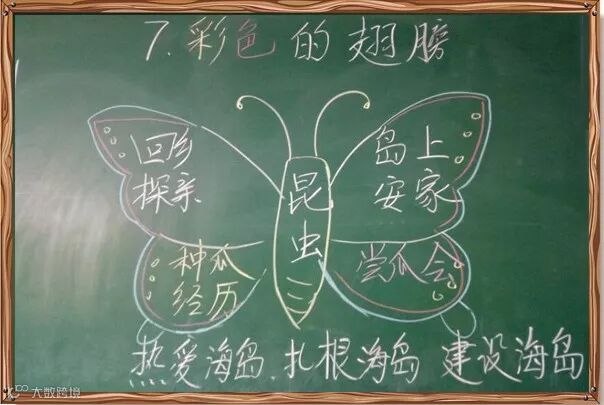 7.彩色的翅膀
回乡
探亲
岛上
安家
昆
虫
种瓜
经历
尝瓜会
热爱海岛 扎根海岛 建设海岛
大数跨境